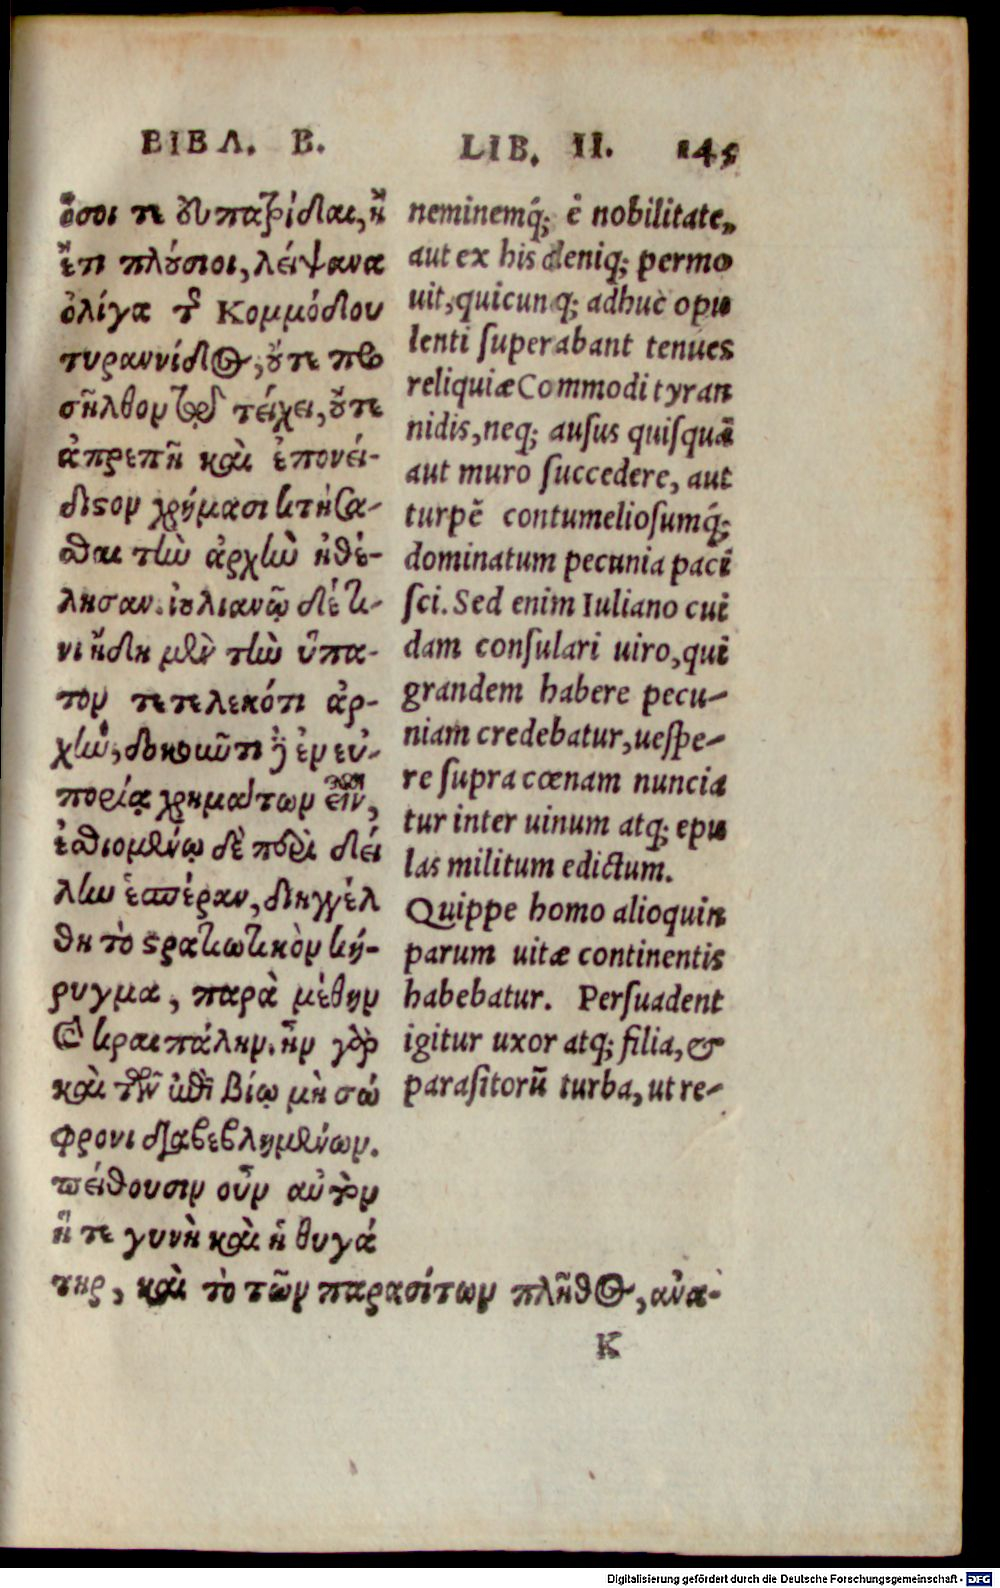 ΒΙΒΛ. Β.
ὅσοι τε εὐπατρίδαι, ἢ
ἔτι πλούσιοι, λείψανα
ὀλίγα τῆς Κομμόδου
τυραννίδος, οὔτε προ
σῆλθον τῷ τείχει, οὔτε
ἀπρεπῆ καὶ ἐπονεί-
διστον χρήμασι κτήσα-
σθαι τὴν ἀρχὴν ἠθέ-
λησαν. ἰουλιανῷ δέ τι-
νι ἤδη μὲν τὴν ὕπα-
τον τετελεκότι ἀρ-
χὴν, δοκοῦντι δὲ ἐν εὐ-
πορίᾳ χρημάτων εἶναι,
ἐσθιομένῳ δὲ περὶ δεί
λην ἑσπέραν, διηγγέλ
θη τὸ στρατιωτικὸν κή-
ρυγμα, παρὰ μέθην
καὶ κραιπάλην. ἦν γὰρ
καὶ τῶν ἐπὶ βίῳ μὴ σώ
φρονι διαβεβλημένων.
πείθουσιν οὖν αὐτὸν
ἥ τε γυνὴ καὶ ἡ θυγά
τηρ, καὶ τὸ τῶν παρασίτων πλῆθος, ἀνα-
LIB. II. 145
neminemq́; ē nobilitate,
aut ex his deniq; permo
uit, quicunq; adhuc opu
lenti superabant tenues
reliquiæ Commodi tyran
nidis, neq; ausus quisquā
aut muro succedere, aut
turpē contumeliosumq́;
dominatum pecunia paci
sci. Sed enim Iuliano cui
dam consulari uiro, qui
grandem habere pecu-
niam credebatur, uespe-
re supra cœnam nuncia
tur inter uinum atq; epu
las militum edictum.
Quippe homo alioquin
parum uitæ continentis
habebatur. Persuadent
igitur uxor atq; filia, &
parasitorū turba, ut re-
K
Digitalisierung gefördert durch die Deutsche Forschungsgemeinschaft - DFG